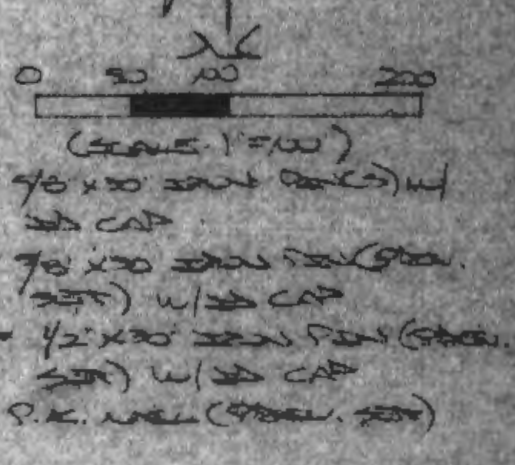 0 50 100 200
(SCALE: 1"=100')
5/8" x 30" IRON PIN(S) W/
ID CAP
5/8" x 30" IRON PIN (PREV.
SET) W/ ID CAP
1/2" x 30" IRON PIN (PREV.
SET) W/ ID CAP
P.K. NAIL (PREV. SET)